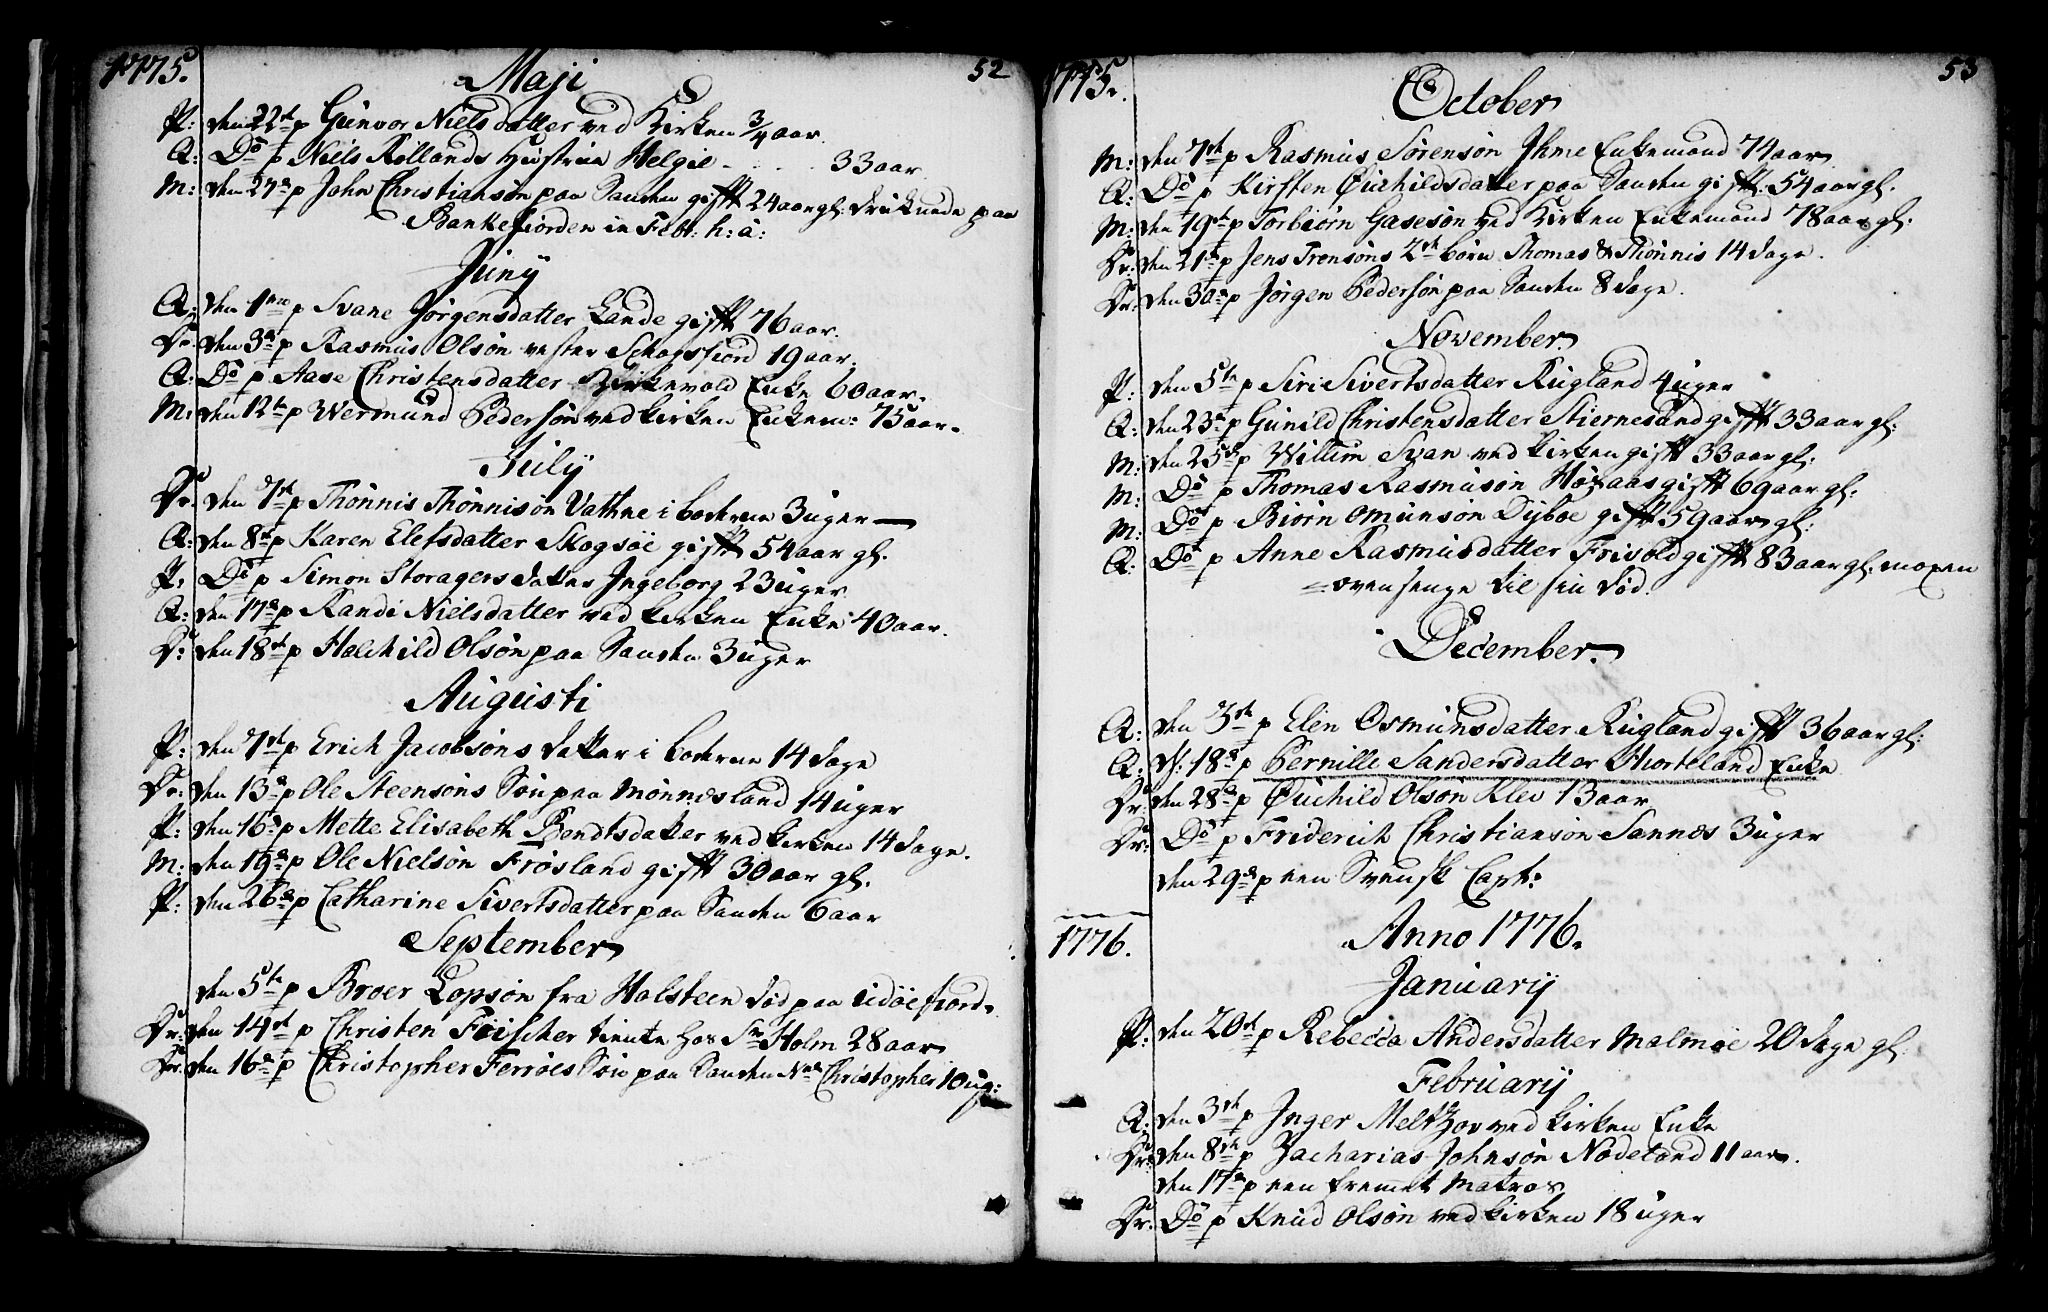 1775. 52
Maji
P: den 22de p Gunvor Nielsdatter ved Kirken 3/4 aar
Q: Do p Niels Røllands Hustrue Helgie - . . 33 aar
M: den 27de p John Christiansøn paa Sanden gifft 24 aar gl: druknede paa
Bankefiorden in Febr: h: a:
Juny
Q: den 1me p Svane Jørgensdatter Lande gifft 76 aar.
Dr: den 3de p Rasmus Olsøn vester Schogsfiord 19 aar.
Q: Do p Aase Christensdatter Birkevold Enke 60 aar.
M: den 12te p Wermund Pedersøn ved Kirken Enkem: 75 aar.
July
Dr: den 7de p Thønnis Thønnisøn Vathne i Boderne 3 uger
Q: den 8de p Karen Elefsdatter Skogsøe gifft 54 aar gl.
P: Do p Simon Storagers datter Ingeborg 23 uger
Q: den 17de p Randi Nielsdatter ved Kirken Enke 40 aar.
Dr: den 18de p Halchild Olsøn paa Sanden 3 uger
Augusti
P: den 7de p Erich Jacobsøns datter i Boderne 14 dage
Dr: den 13de p Ole Steensøns Søn paa Mønnesland 14 uger
P: den 16de p Mette Elisabeth Bendtsdatter ved Kirken 14 dage.
M: den 19de p Ole Nielsøn Frøsland gifft 30 aar gl.
P: den 26de p Catharine Sivertsdatter paa Sanden 6 aar
September
den 5te p Broer Lopsøn fra Holsteen død paa Udøefiord.
Dr: den 14de p Christen Føischer tiente hos Sr Holm 28 aar
Dr: den 16de p Christopher Ferrøes Søn paa Sanden Nne Christopher 10 ug:
1775. 53
October
M: den 7de p Rasmus Sørensøn Ihme Enkemand 74 aar
Q: Do p Kirsten Øuchildsdatter paa Sanden gifft. 54 aar gl.
M: den 19de p Torbiørn Gasesøn ved Kirken Enkemand 78 aar gl:
Dr: den 21de p Jens Trensøns 2de børn Thomas & Thønnis 14 dage.
Dr: den 30de p Jørgen Pedersøn paa Sanden 8 dage.
November
P: den 5te p Siri Sivertsdatter Rugland 4 uger
Q: den 23de p Gunild Christensdatter Stiernesand gifft 33 aar gl:
M: den 25de p Willum Svan ved Kirken gifft 33 aar gl:
M: Do p Thomas Rasmusøn Høyaas gifft 69 aar gl:
M: Do p Biørn Omunsøn Dybøe gifft 59 aar gl:
Q: Do p Anne Rasmusdatter Frivold gifft 83 aar gl: moxen
ovensenge til sin død.
December.
Q: den 3de p Elen Osmunsdatter Rugland gifft 36 aar gl:
Q: d: 18de p Pernille Sandersdatter Hvorteland Enke
Dr: den 28de p Øuchild Olsøn Klev 13 aar
Dr: Do p Friderich Christiansøn Sannæs 3 uger
den 29de p een Svensk Capt:
1776. Anno 1776.
January
P: den 20de p Rebecca Andersdatter Malmøe 20 dage gl.
February
Q: den 3de p Inger Meltzov ved Kirken Enke
Dr: den 8de p Zacharias Johnsøn Nodeland 11 aar.
den 17de p een fremmet Matros
Dr: Do p Knud Olsøn ved Kirken 18 uger